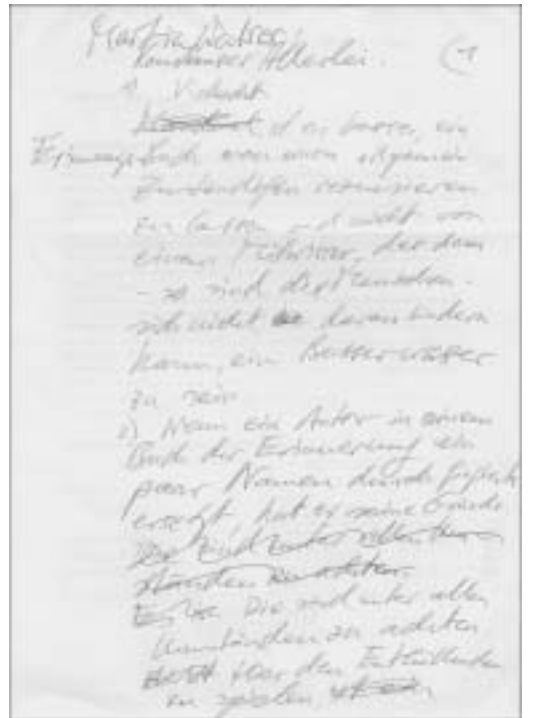 Martin Walser,
Konstanzer Allerlei. 1
1) Vielleicht
ist es besser, ein
Erinnerungsbuch von einem allgemein
Zuständigen rezensieren
zu lassen und nicht von
einem Mitwisser, der dann
– so sind die Menschen –
sich nicht daran hindern
kann, ein Besserwisser
zu sein
2) Wenn ein Autor in einem
Buch der Erinnerung ein
paar Namen durch
ersetzt, hat er seine Gründe
Die sind unter allen Um-
ständen zu achten.
Die sind unter allen
Umständen zu achten
den Enthüllenden
zu spielen